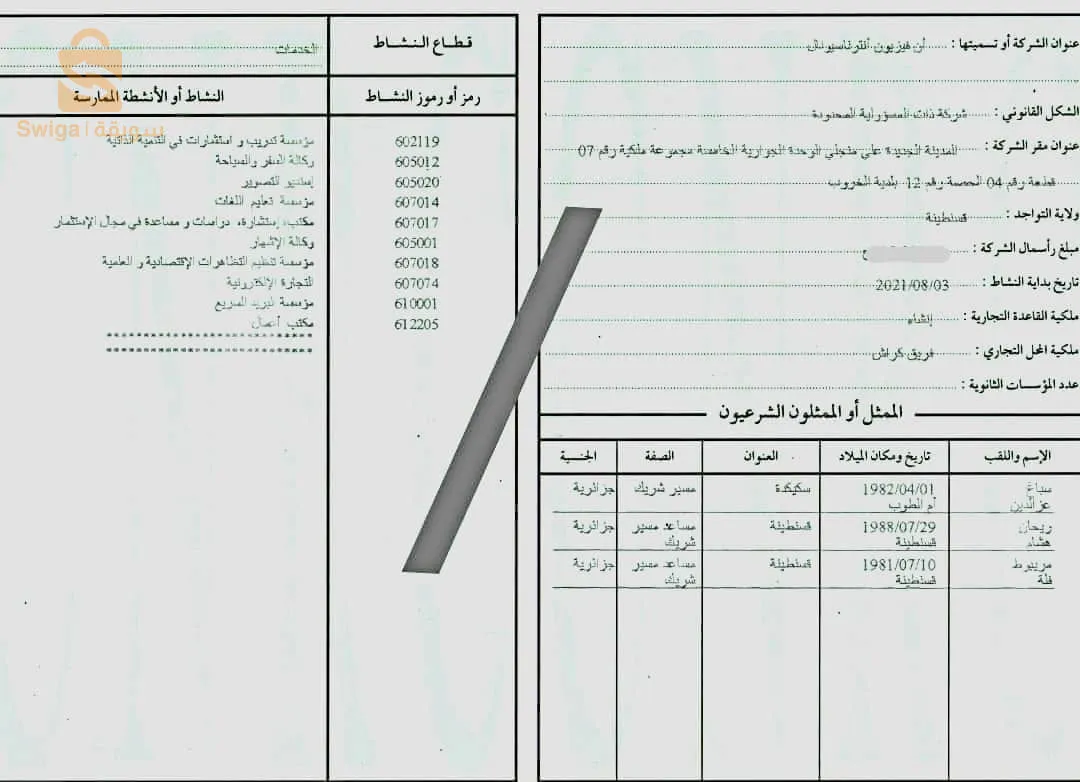 عنوان الشركة أو تسميتها : أن فيزيون أنترناسيونال
الشكل القانوني : شركة ذات المسؤولية المحدودة
عنوان مقر الشركة : المدينة الجديدة علي منجلي الوحدة الجوارية الخامسة مجموعة ملكية رقم 07
قطعة رقم 04 الحصة رقم 12 بلدية الخروب
ولاية التواجد : قسنطينة
مبلغ رأسمال الشركة :
تاريخ بداية النشاط : 2021/08/03
ملكية القاعدة التجارية : إنشاء
ملكية المحل التجاري : فريق كراش
عدد المؤسسات الثانوية :
الممثل أو الممثلون الشرعيون
الإسم واللقب تاريخ ومكان الميلاد العنوان الصفة الجنسية
سباغ 1982/04/01 سكيكدة مسير شريك جزائرية
عزالدين أم الطوب
ريحان 1988/07/29 قسنطينة مساعد مسير جزائرية
هشام قسنطينة شريك
مريبوط 1981/07/10 قسنطينة مساعد مسير جزائرية
فلة قسنطينة شريك
قطاع النشاط الخدمات
رمز أو رموز النشاط النشاط أو الأنشطة الممارسة
Swiga | سويقة
602119 مؤسسة تدريب و استشارات في التنمية الذاتية
605012 وكالة السفر والسياحة
605020 إستديو التصوير
607014 مؤسسة تعليم اللغات
607017 مكتب، إستشارة، دراسات و مساعدة في مجال الإستثمار
605001 وكالة الإشهار
607018 مؤسسة تنظيم التظاهرات الإقتصادية و العلمية
607074 التجارة الإلكترونية
610001 مؤسسة البريد السريع
612205 مكتب أعمال